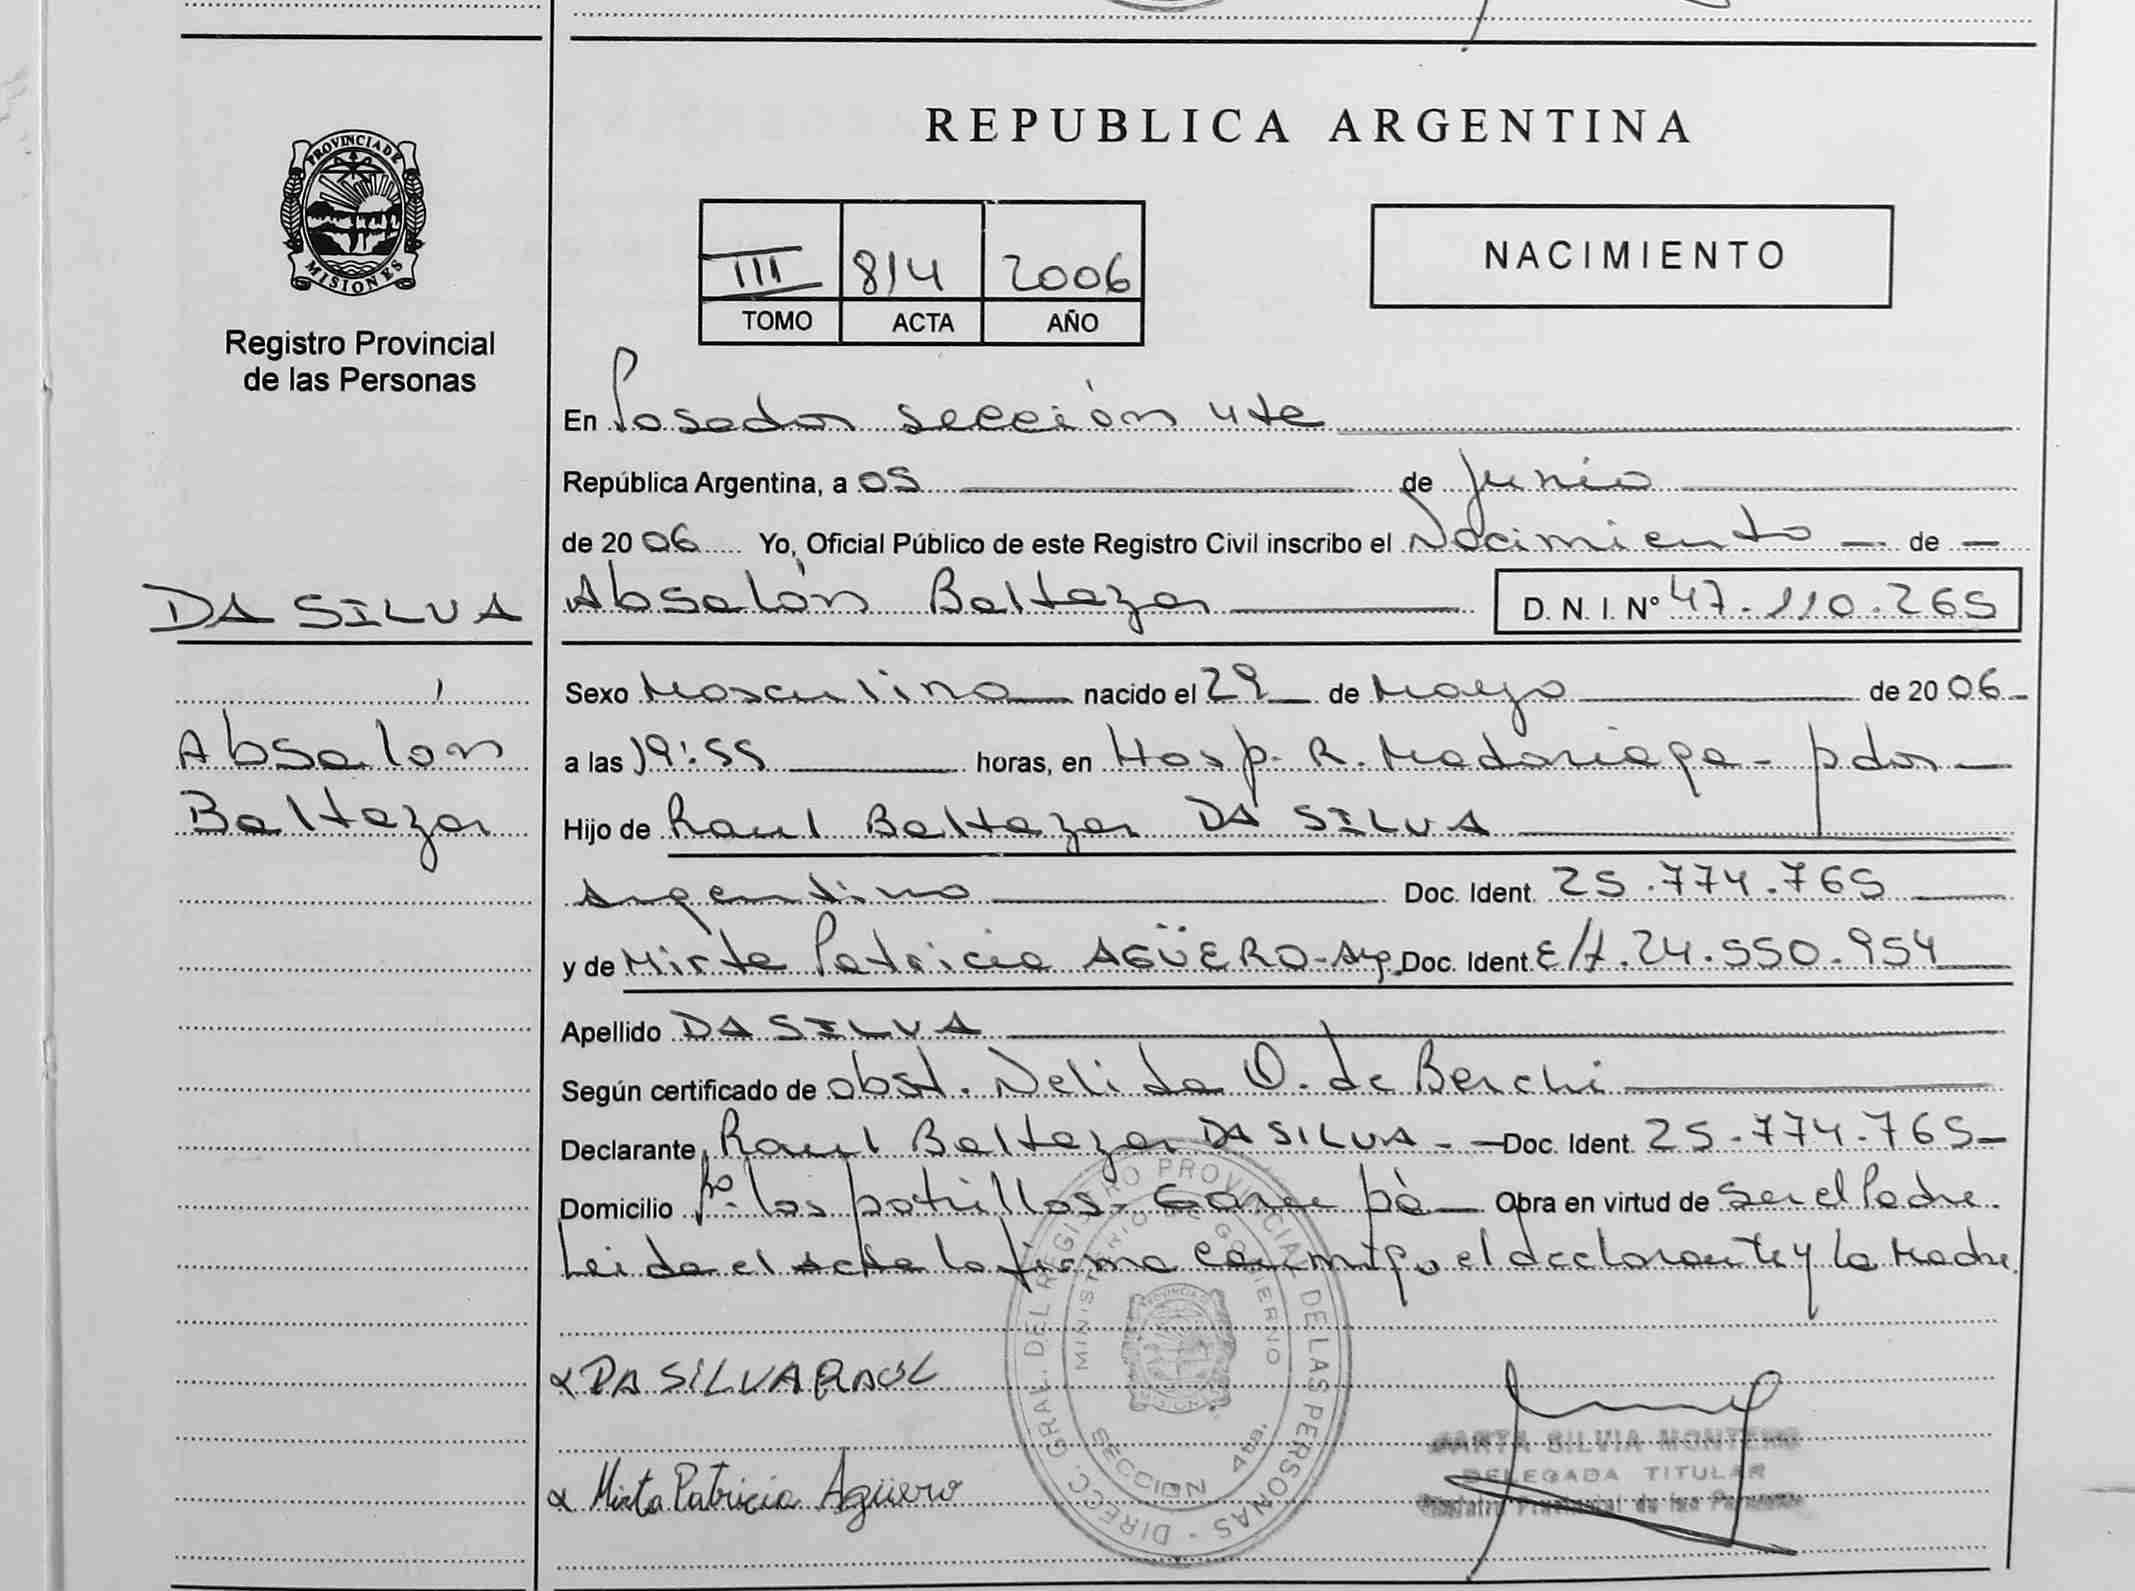 PROVINCIA DE
MISIONES
Registro Provincial
de las Personas
DA SILVA
Absalón
Baltazar
REPUBLICA ARGENTINA
III 814 2006
TOMO ACTA AÑO
NACIMIENTO
En Posadas sección 4ta
República Argentina, a 05 de Junio
de 2006 Yo, Oficial Público de este Registro Civil inscribo el Nacimiento de
Absalón Baltazar D. N. I. Nº 47.110.265
Sexo Masculino nacido el 29 de Mayo de 2006
a las 19:55 horas, en Hosp. R. Madariaga - pdas
Hijo de Raul Baltazar DA SILVA
Argentino Doc. Ident. 25.774.765
y de Mirta Patricia AGÜERO - Arg. Doc. Ident. E/t. 24.550.954
Apellido DA SILVA
Según certificado de obst. Nelida O. de Berchi
Declarante Raul Baltazar DA SILVA - Doc. Ident. 25.774.765
Domicilio Bº los potrillos - Garupá Obra en virtud de ser el Padre.
Leida el acta la firma conmigo el declarante y la Madre.
DA SILVA RAÚL
Mirta Patricia Agüero
DIRECC. GRAL. DEL REGISTRO PROVINCIAL DE LAS PERSONAS
MINISTERIO DE GOBIERNO
SECCION 4ta.
SILVIA MONTERO
DELEGADA TITULAR
Registro Provincial de las Personas